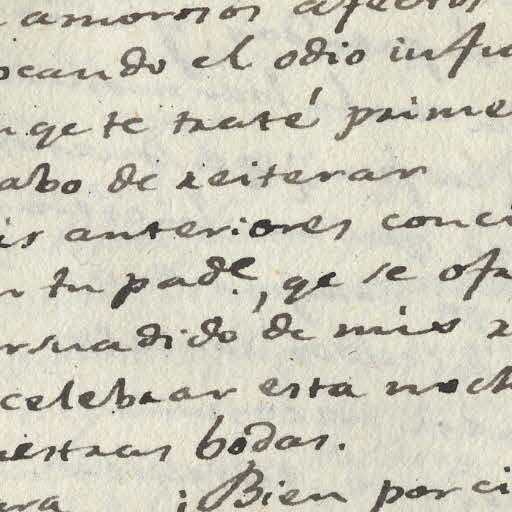 amorosos afectos
ocando el odio inju
n qe te traté prime
abo de reiterar
is anteriores conci
n tu pade, qe se ofr
rsuadido de mis r
celebrar esta noch
uestras bodas.
ara ¡Bien por ci